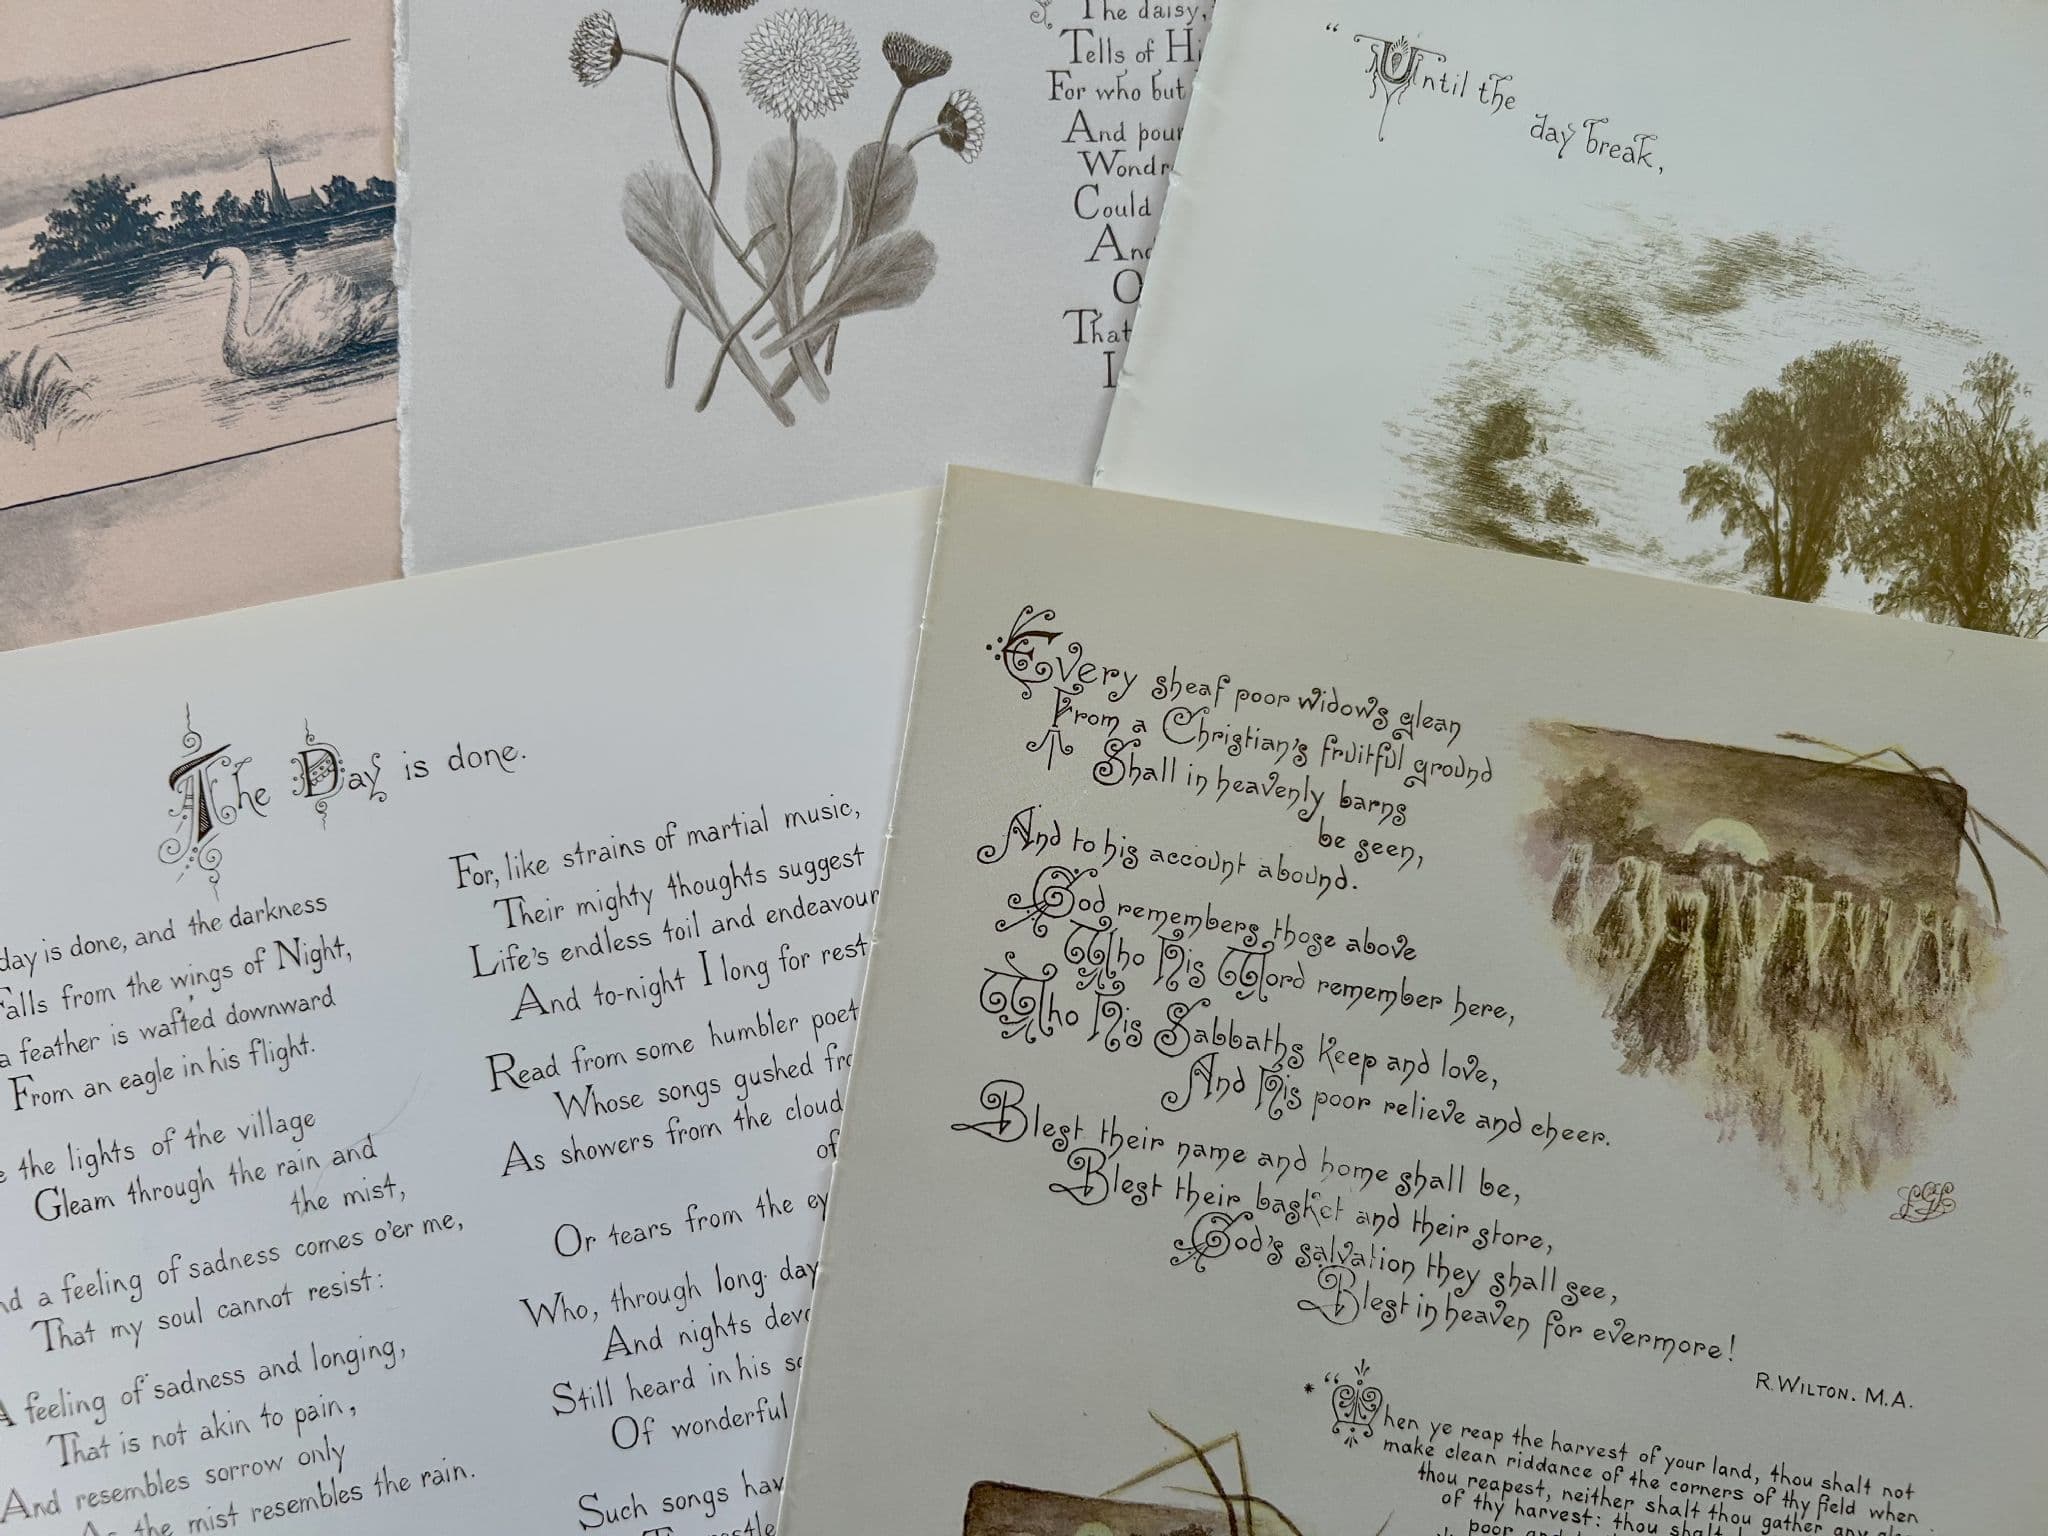 The daisy,
Tells of
For who but
And pour
Could
And
That
I
"Until the
day break,
The Day is done.
day is done, and the darkness
Falls from the wings of Night,
a feather is wafted downward
From an eagle in his flight.
the lights of the village
Gleam through the rain and
the mist,
a feeling of sadness comes o'er me,
That my soul cannot resist:
A feeling of sadness and longing,
That is not akin to pain,
And resembles sorrow only
As the mist resembles the rain.
For, like strains of martial music,
Their mighty thoughts suggest
Life's endless toil and endeavour
And to-night I long for rest
Read from some humbler poet
Whose songs gushed
As showers from the cloud
of
Or tears from the
Who, through long day
And nights
Still heard in his
Of wonderful
Such songs
Every sheaf poor widows glean
From a Christian's fruitful ground
Shall in heavenly barns
be seen,
And to his account abound.
God remembers those above
Who His Word remember here,
Who His Sabbaths keep and love,
And His poor relieve and cheer.
Blest their name and home shall be,
Blest their basket and their store,
God's salvation they shall see,
Blest in heaven for evermore!
R. WILTON. M.A.
* "When ye reap the harvest of your land, thou shalt not
make clean riddance of the corners of thy field when
thou reapest, neither shalt thou gather any
of thy harvest: thou shalt
poor and